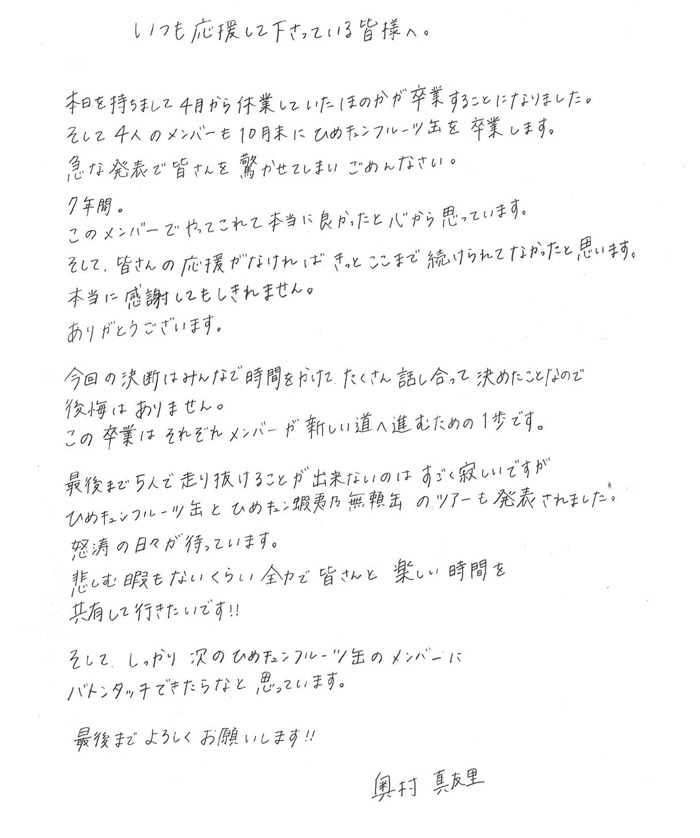 いつも応援して下さっている皆様へ。
本日を持ちまして4月から休業していたほのかが卒業することになりました。
そして4人のメンバーも10月末にひめキュンフルーツ缶を卒業します。
急な発表で皆さんを驚かせてしまいごめんなさい。
7年間。
このメンバーでやってこれて本当に良かったと心から思っています。
そして、皆さんの応援がなければきっとここまで続けられてなかったと思います。
本当に感謝してもしきれません。
ありがとうございます。
今回の決断はみんなで時間をかけて、たくさん話し合って決めたことなので
後悔はありません。
この卒業はそれぞれメンバーが新しい道へ進むための1歩です。
最後まで5人で走り抜けることが出来ないのはすごく寂しいですが
ひめキュンフルーツ缶とひめキュン蝦夷乃無頼缶のツアーも発表されました。
怒涛の日々が待っています。
悲しむ暇もないくらい全力で皆さんと楽しい時間を
共有して行きたいです!!
そして、しっかり次のひめキュンフルーツ缶のメンバーに
バトンタッチできたらなと思っています。
最後までよろしくお願いします!!
奥村 真友里